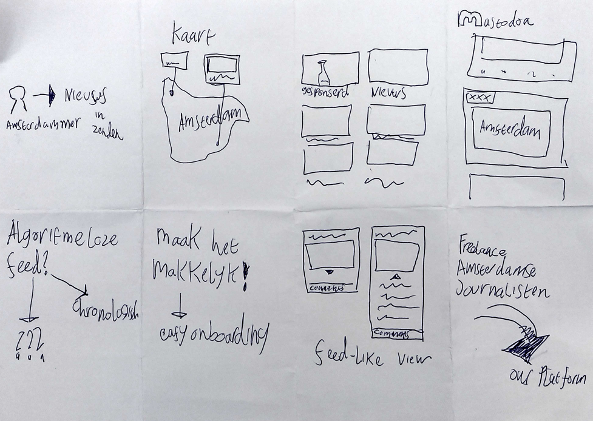 Nieuws
Amsterdammer
in
zenden
Kaart
Amsterdam
gesponserd
Nieuws
Mastodon
xxx
Amsterdam
Algoritmeloze
feed?
Chronologisch
???
maak het
makkelyk!
easy onboarding
comments
comments
feed-like view
Freelance
Amsterdamse
Journalisten
our platform